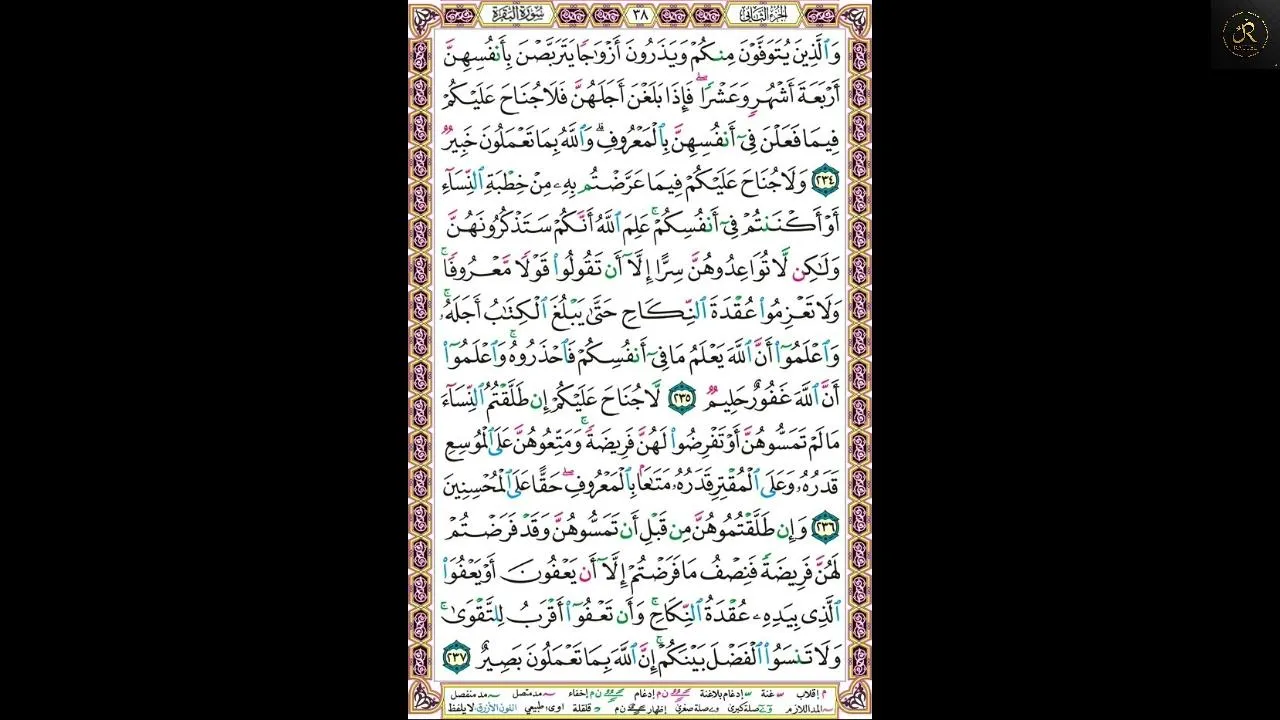 الجزء الثاني ٣٨ سورة البقرة
وَٱلَّذِينَ يُتَوَفَّوْنَ مِنكُمْ وَيَذَرُونَ أَزْوَٰجًا يَتَرَبَّصْنَ بِأَنفُسِهِنَّ
أَرْبَعَةَ أَشْهُرٍ وَعَشْرًا ۖ فَإِذَا بَلَغْنَ أَجَلَهُنَّ فَلَا جُنَاحَ عَلَيْكُمْ
فِيمَا فَعَلْنَ فِىٓ أَنفُسِهِنَّ بِٱلْمَعْرُوفِ ۗ وَٱللَّهُ بِمَا تَعْمَلُونَ خَبِيرٌ
٢٣٤ وَلَا جُنَاحَ عَلَيْكُمْ فِيمَا عَرَّضْتُم بِهِۦ مِنْ خِطْبَةِ ٱلنِّسَآءِ
أَوْ أَكْنَنتُمْ فِىٓ أَنفُسِكُمْ ۚ عَلِمَ ٱللَّهُ أَنَّكُمْ سَتَذْكُرُونَهُنَّ
وَلَٰكِن لَّا تُوَاعِدُوهُنَّ سِرًّا إِلَّآ أَن تَقُولُوا۟ قَوْلًا مَّعْرُوفًا ۚ
وَلَا تَعْزِمُوا۟ عُقْدَةَ ٱلنِّكَاحِ حَتَّىٰ يَبْلُغَ ٱلْكِتَٰبُ أَجَلَهُۥ ۚ
وَٱعْلَمُوٓا۟ أَنَّ ٱللَّهَ يَعْلَمُ مَا فِىٓ أَنفُسِكُمْ فَٱحْذَرُوهُ ۚ وَٱعْلَمُوٓا۟
أَنَّ ٱللَّهَ غَفُورٌ حَلِيمٌ ٢٣٥ لَّا جُنَاحَ عَلَيْكُمْ إِن طَلَّقْتُمُ ٱلنِّسَآءَ
مَا لَمْ تَمَسُّوهُنَّ أَوْ تَفْرِضُوا۟ لَهُنَّ فَرِيضَةً ۚ وَمَتِّعُوهُنَّ عَلَى ٱلْمُوسِعِ
قَدَرُهُۥ وَعَلَى ٱلْمُقْتِرِ قَدَرُهُۥ مَتَٰعًۢا بِٱلْمَعْرُوفِ ۖ حَقًّا عَلَى ٱلْمُحْسِنِينَ
٢٣٦ وَإِن طَلَّقْتُمُوهُنَّ مِن قَبْلِ أَن تَمَسُّوهُنَّ وَقَدْ فَرَضْتُمْ
لَهُنَّ فَرِيضَةً فَنِصْفُ مَا فَرَضْتُمْ إِلَّآ أَن يَعْفُونَ أَوْ يَعْفُوَا۟
ٱلَّذِى بِيَدِهِۦ عُقْدَةُ ٱلنِّكَاحِ ۚ وَأَن تَعْفُوٓا۟ أَقْرَبُ لِلتَّقْوَىٰ ۚ
وَلَا تَنسَوُا۟ ٱلْفَضْلَ بَيْنَكُمْ ۚ إِنَّ ٱللَّهَ بِمَا تَعْمَلُونَ بَصِيرٌ ٢٣٧
م إقلاب غنة إدغام بلاغنة ن م إدغام ن م إخفاء مد متصل مد منفصل
المد اللازم صلة كبرى صلة صغرى إظهار ن م قلقلة طبيعي اللون الأزرق لا يلفظ